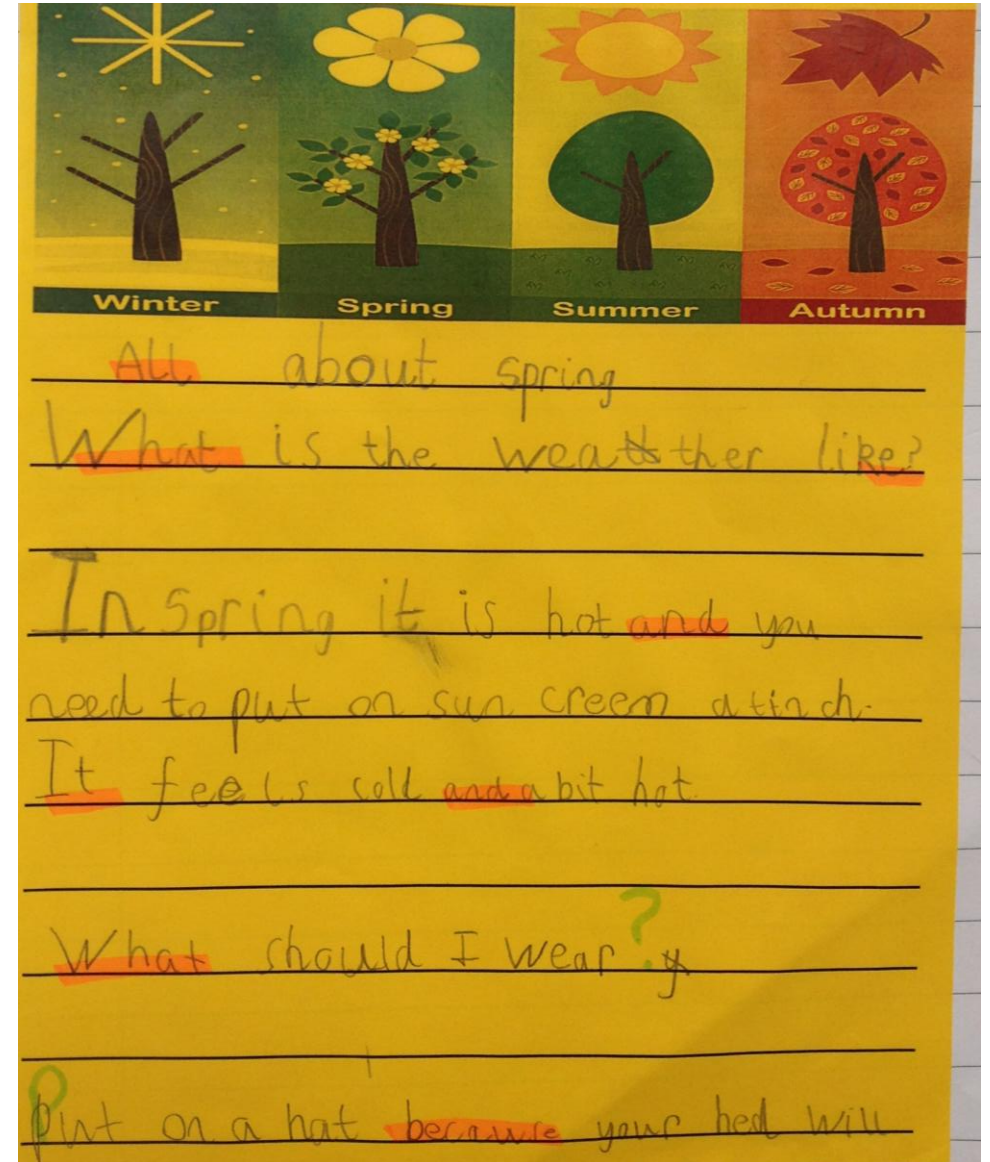 Winter Spring Summer Autumn
All about spring
What is the weather like?
In Spring it is hot and you
need to put on sun creem
It feels cold and a bit hot.
What should I wear?
Put on a hat because your hed will